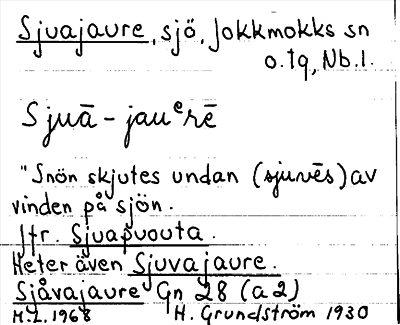 Sjuajaure, sjö, Jokkmokks sn
o. tq, Nb. l.
Sjuā - jauᵉrē
"Snön skjutes undan (sjuvēs) av
vinden på sjön.
Jfr. Sjuapuouta.
Heter även Sjuvajaure.
Sjåvajaure Gn 28 (a2)
M.L. 1968 H. Grundström 1930